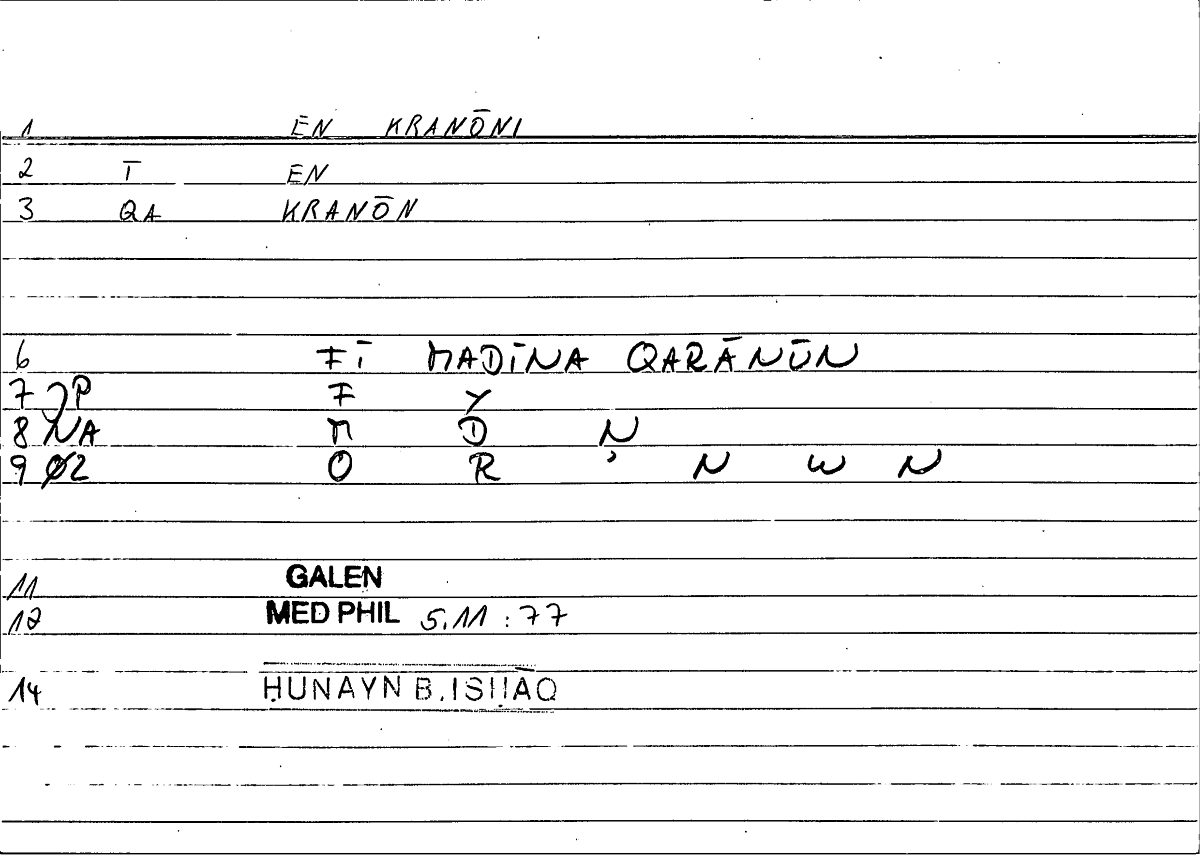 1 EN KRANŌNI
2 T EN
3 QA KRANŌN
6 FĪ MADĪNA QARĀNŪN
7 P F Y
8 NA M D N
9 Ø2 Q R ʾ N W N
11 GALEN
12 MED PHIL 5.11 : 77
14 ḤUNAYN B. ISḤĀQ